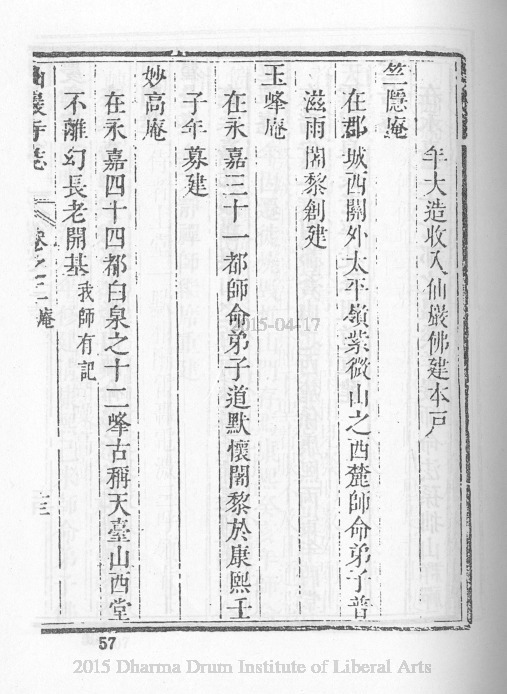 年大造收入仙巖佛建本戶
竺隱庵
在郡城西關外太平嶺紫微山之西麓師命弟子普
滋雨闍黎創建
玉峰庵
在永嘉三十一都師命弟子道默懷闍黎於康熙壬
子年募建
妙高庵
在永嘉四十四都白泉之十二峰古稱天臺山西堂
不離幻長老開基我師有記
仙巖寺志 卷之二 庵 十三
57
2015-04-17
2015 Dharma Drum Institute of Liberal Arts